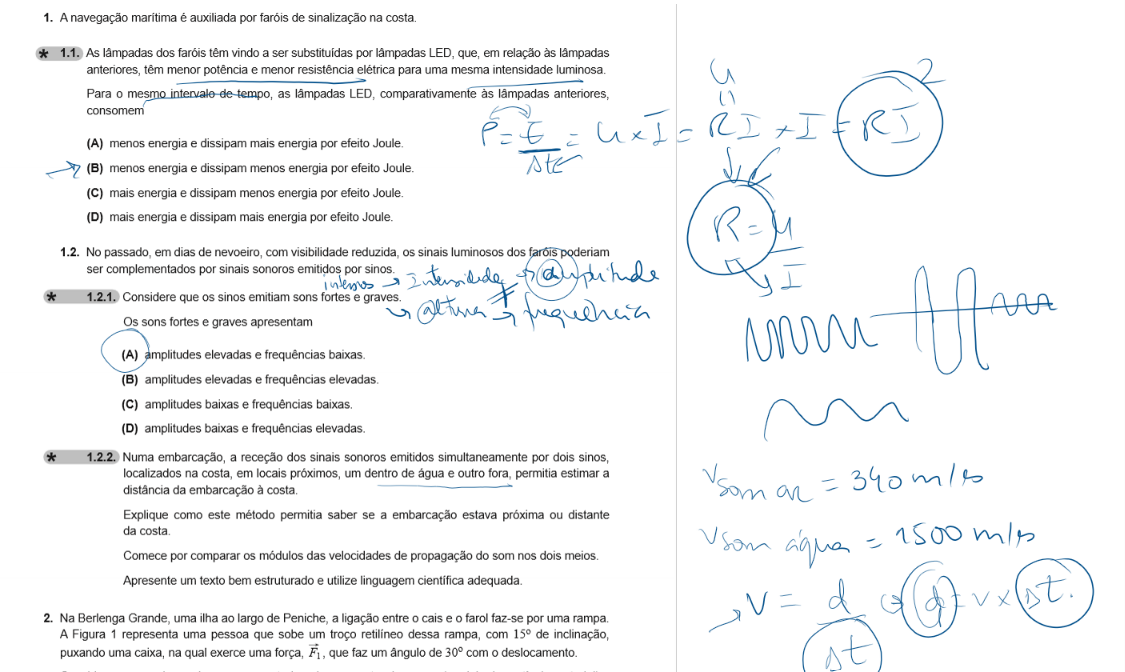 1. A navegação marítima é auxiliada por faróis de sinalização na costa.
* 1.1. As lâmpadas dos faróis têm vindo a ser substituídas por lâmpadas LED, que, em relação às lâmpadas
anteriores, têm menor potência e menor resistência elétrica para uma mesma intensidade luminosa.
Para o mesmo intervalo de tempo, as lâmpadas LED, comparativamente às lâmpadas anteriores,
consomem
(A) menos energia e dissipam mais energia por efeito Joule.
(B) menos energia e dissipam menos energia por efeito Joule.
(C) mais energia e dissipam menos energia por efeito Joule.
(D) mais energia e dissipam mais energia por efeito Joule.
P = E/Δt = U × I = RI × I = RI²
U
R = U/I
1.2. No passado, em dias de nevoeiro, com visibilidade reduzida, os sinais luminosos dos faróis poderiam
ser complementados por sinais sonoros emitidos por sinos.
intensos → Intensidade → amplitude
* 1.2.1. Considere que os sinos emitiam sons fortes e graves.
↳ altura → frequência
Os sons fortes e graves apresentam
(A) amplitudes elevadas e frequências baixas.
(B) amplitudes elevadas e frequências elevadas.
(C) amplitudes baixas e frequências baixas.
(D) amplitudes baixas e frequências elevadas.
* 1.2.2. Numa embarcação, a receção dos sinais sonoros emitidos simultaneamente por dois sinos,
localizados na costa, em locais próximos, um dentro de água e outro fora, permitia estimar a
distância da embarcação à costa.
Explique como este método permitia saber se a embarcação estava próxima ou distante
da costa.
Comece por comparar os módulos das velocidades de propagação do som nos dois meios.
Apresente um texto bem estruturado e utilize linguagem científica adequada.
v som ar = 340 m/s
v som água = 1500 m/s
v = d/Δt ⇔ d = v × Δt.
2. Na Berlenga Grande, uma ilha ao largo de Peniche, a ligação entre o cais e o farol faz-se por uma rampa.
A Figura 1 representa uma pessoa que sobe um troço retilíneo dessa rampa, com 15º de inclinação,
puxando uma caixa, na qual exerce uma força, F⃗₁, que faz um ângulo de 30º com o deslocamento.